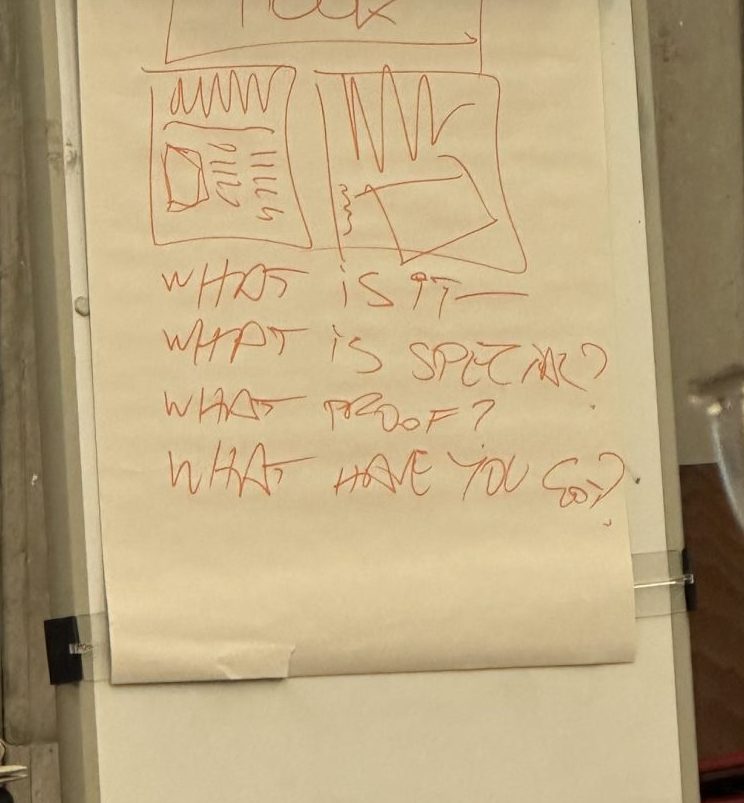 WHAT IS IT—
WHAT IS SPECIAL?
WHAT PROOF?
WHAT HAVE YOU GOT?